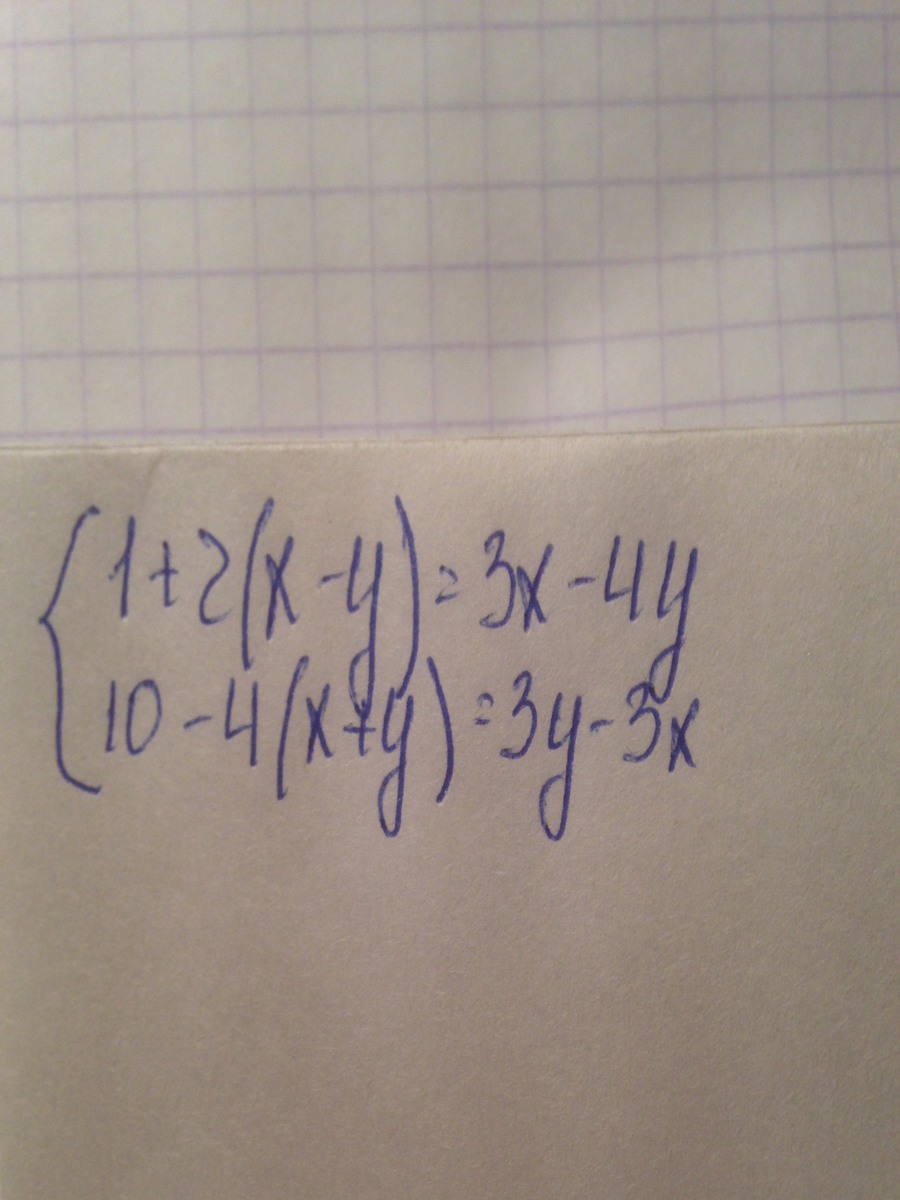 1+2(x-y)=3x-4y
10-4(x+y)=3y-3x